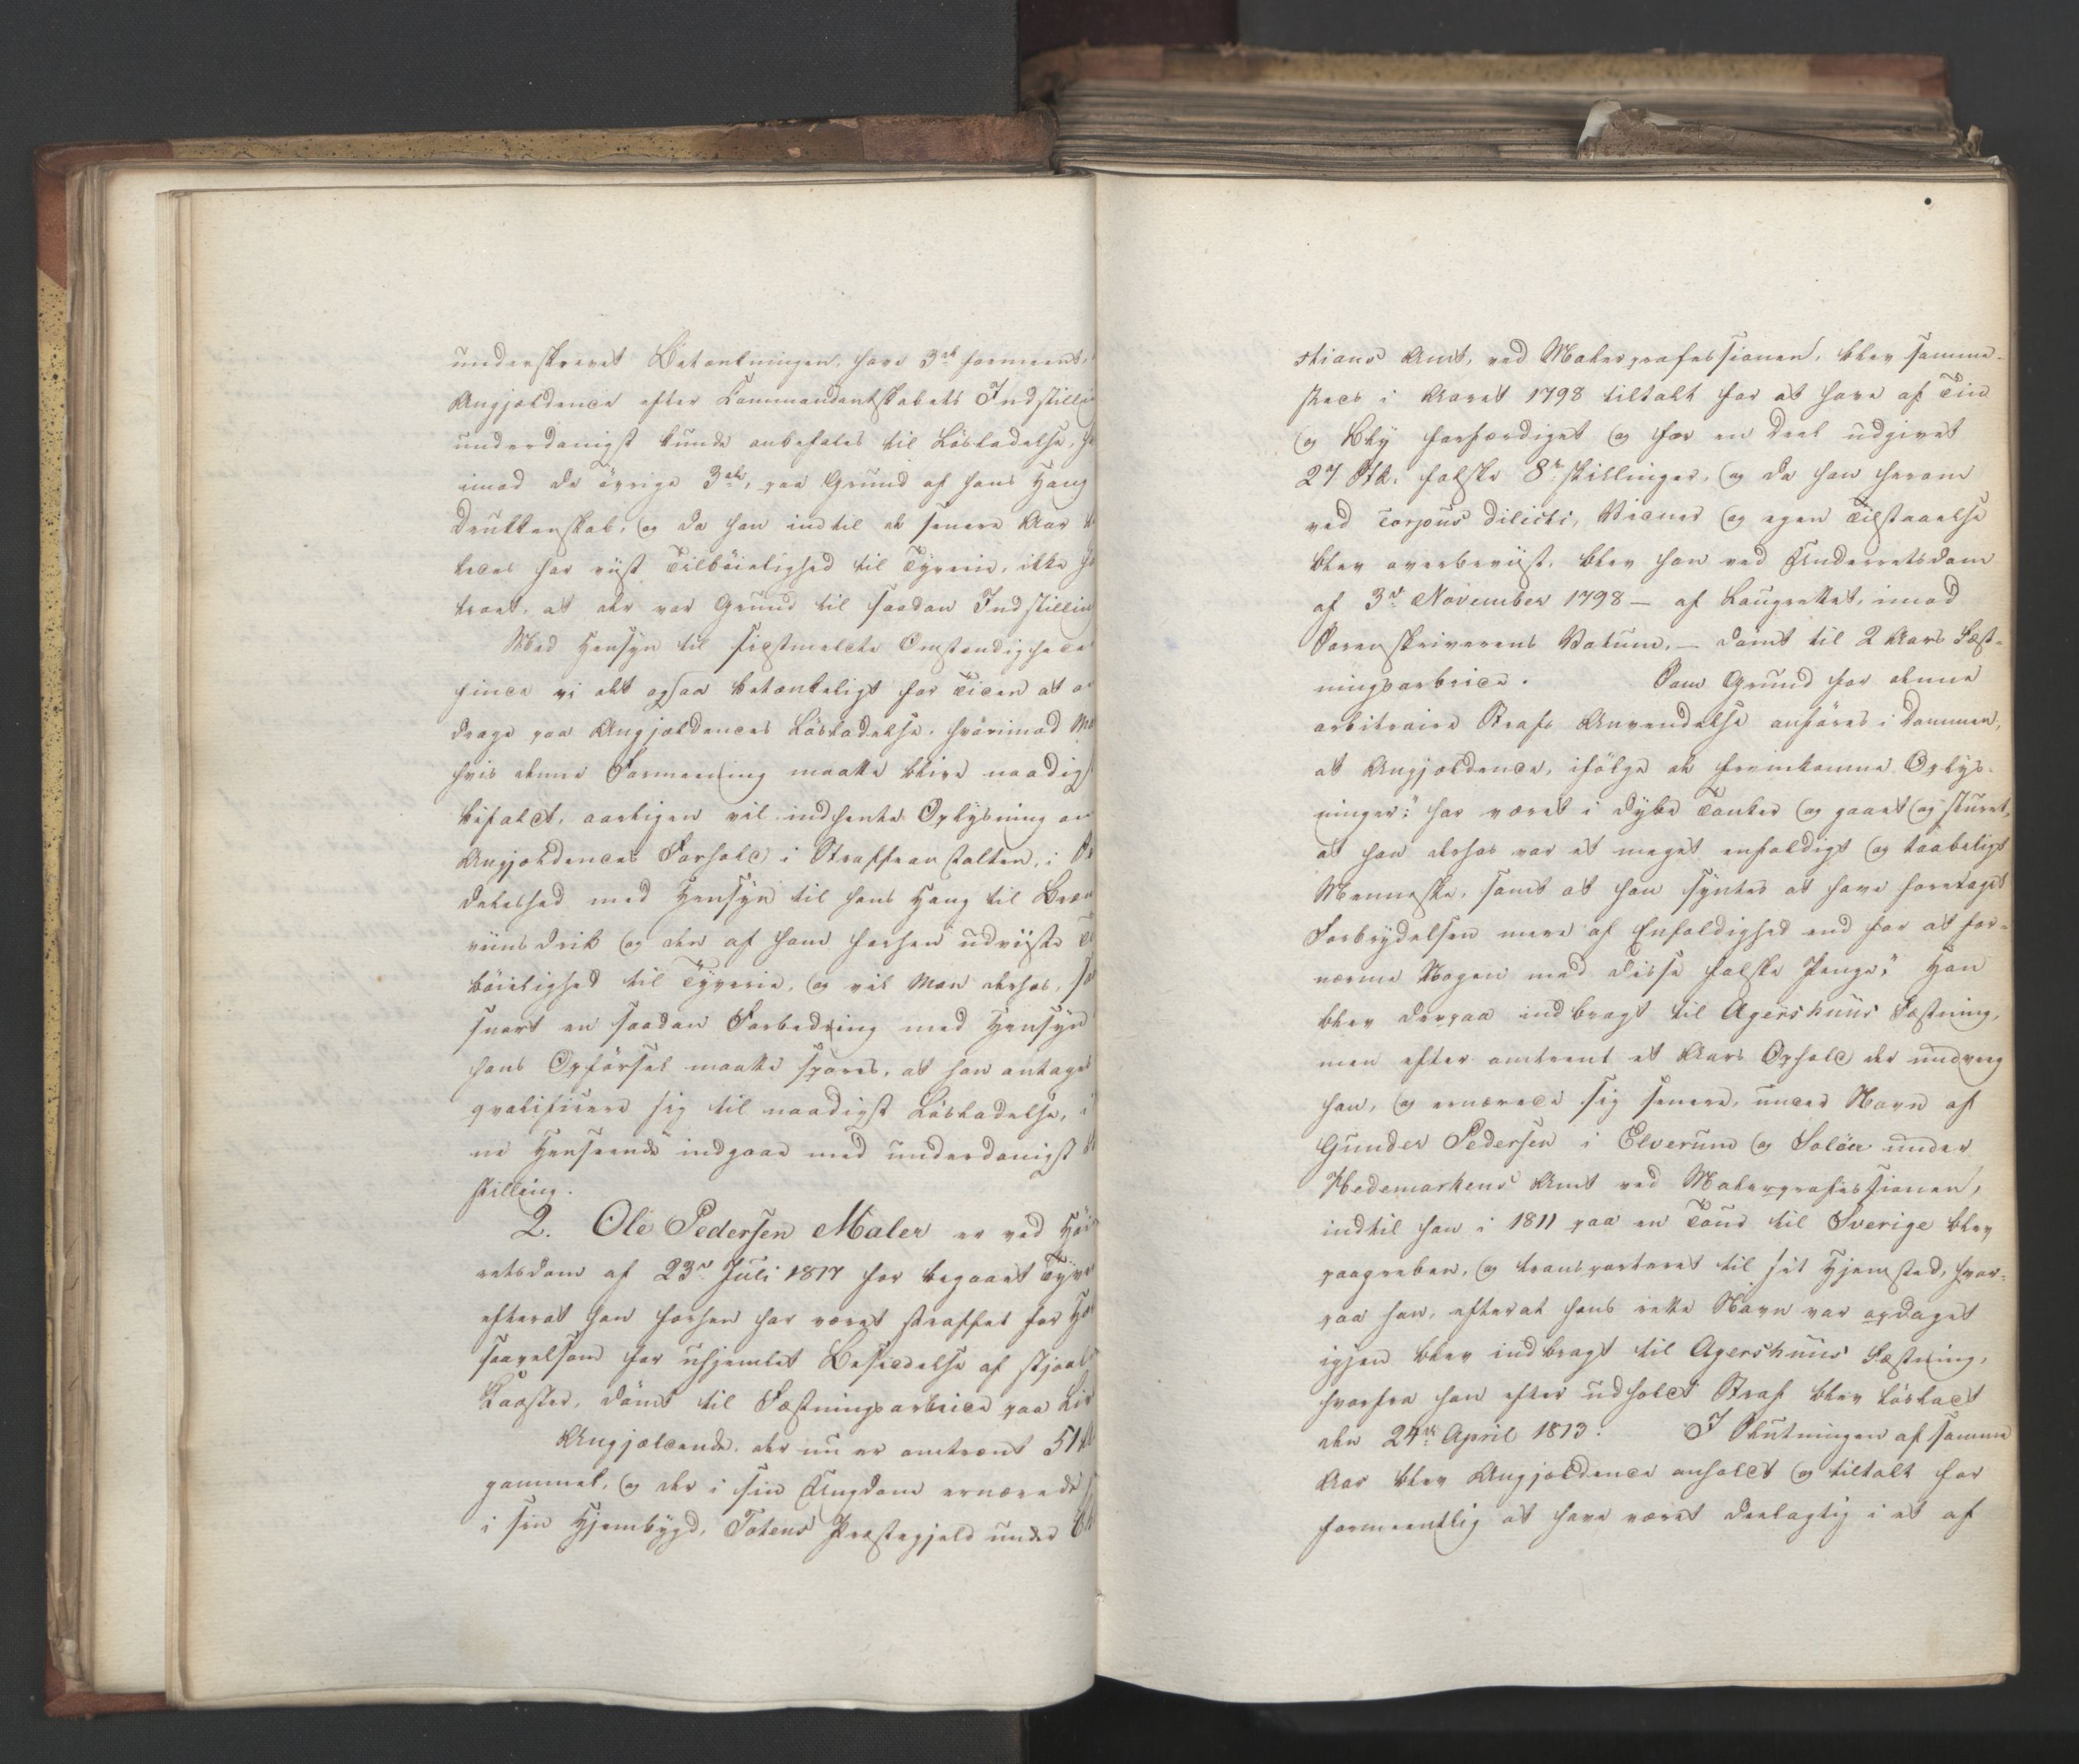 underskrevet Betænkningen, have 3de formeent,
Angjældende efter Commandantskabets Indstillin
underdanigst kunde anbefales til Løsladelse, h
imod de øvrige 3de, paa Grund af hans Hang
Drukkenskab, og da han indtil de senere Aar
ledes har viist Tilbøielighed til Tyverie, ikke ha
troet, at der var Grund til saadan Indstillin
Med Hensyn til sidstmeldte Omstændigheder
finde vi det ogsaa betænkeligt for Tiden at an
drage paa Angjældendes Løsladelse, hvorimod Ma
hvis denne Formening maatte blive naadigst
bifaldt, aarligen vil indhente Oplysning om
Angjældendes Forhold i Straffeanstalten, i
deleshed med Hensyn til hans Hang til Bræn
viinsdrik og den af ham forhen udviiste Til
bøielighed til Tyverie, og vil Man derhos, saa
snart en saadan Forbedring med Hensyn
hans Opførsel maatte spores, at han antages
qvalificere sig til naadigst Løsladelse, i
ne Henseende indgaae med underdanigst
stilling.
2. Ole Pedersen Maler er ved Høie
retsdom af 23de Juli 1817 for begaaet Tyve
efterat han forhen har været straffet for Hæ
saavelsom for uhjemlet Besiddelse af stjaal
Kaaster, dømt til Fæstningsarbeide paa Liv
Angjældende, der nu er omtrent 51
gammel, og der i sin Ungdom ernærede
i sin Hjembygd, Totens Præstegjeld under
stians Amt, ved Malerprofessionen, blev samme-
steds i Aaret 1798 tiltalt for at have af Tin
og Bly forfærdiget og for en Deel udgivet
27 Stk. falske 8te skillinger, og da han herom
ved corpus delicti, Vidner og egen Tilstaaelse
blev overbeviist, blev han ved Underretsdom
af 3de November 1798 — af Laugrettet, imod
Sorenskriverens Votum, — dømt til 2 Aars Fæst-
ningsarbeide. Som Grund for denne
arbitraire Strafs Anvendelse anføres i Dommen,
at Angjældende, ifølge de fremkomne Oplys-
ninger: "har været i dybe Tanker og gaaet og sturet,
at han derhos var et meget enfoldigt og taabeligt
Menneske, samt at han syntes at have foretaget
Forbrydelsen mere af Enfoldighed end for at for-
nærme Nogen med disse falske Penge." Han
blev derpaa indbragt til Agershuus Fæstning,
men efter omtrent et Aars Ophold der undveeg
han, og ernærede sig senere, under Navn af
Gunder Pedersen i Elverum og Soløer under
Hedemarkens Amt ved Malerprofessionen,
indtil han i 1811 paa en Tour til Sverige blev
paagreben, og transporteret til sit Hjemsted, hvor-
paa han, efterat hans rette Navn var opdaget
igjen blev indbragt til Agershuus Fæstning,
hvorfra han efter udholdt Straf blev løsladt
den 24de April 1813. I Slutningen af samme
Aar blev Angjældende anholdt og tiltalt for
formeentlig at have været deelagtig i et af